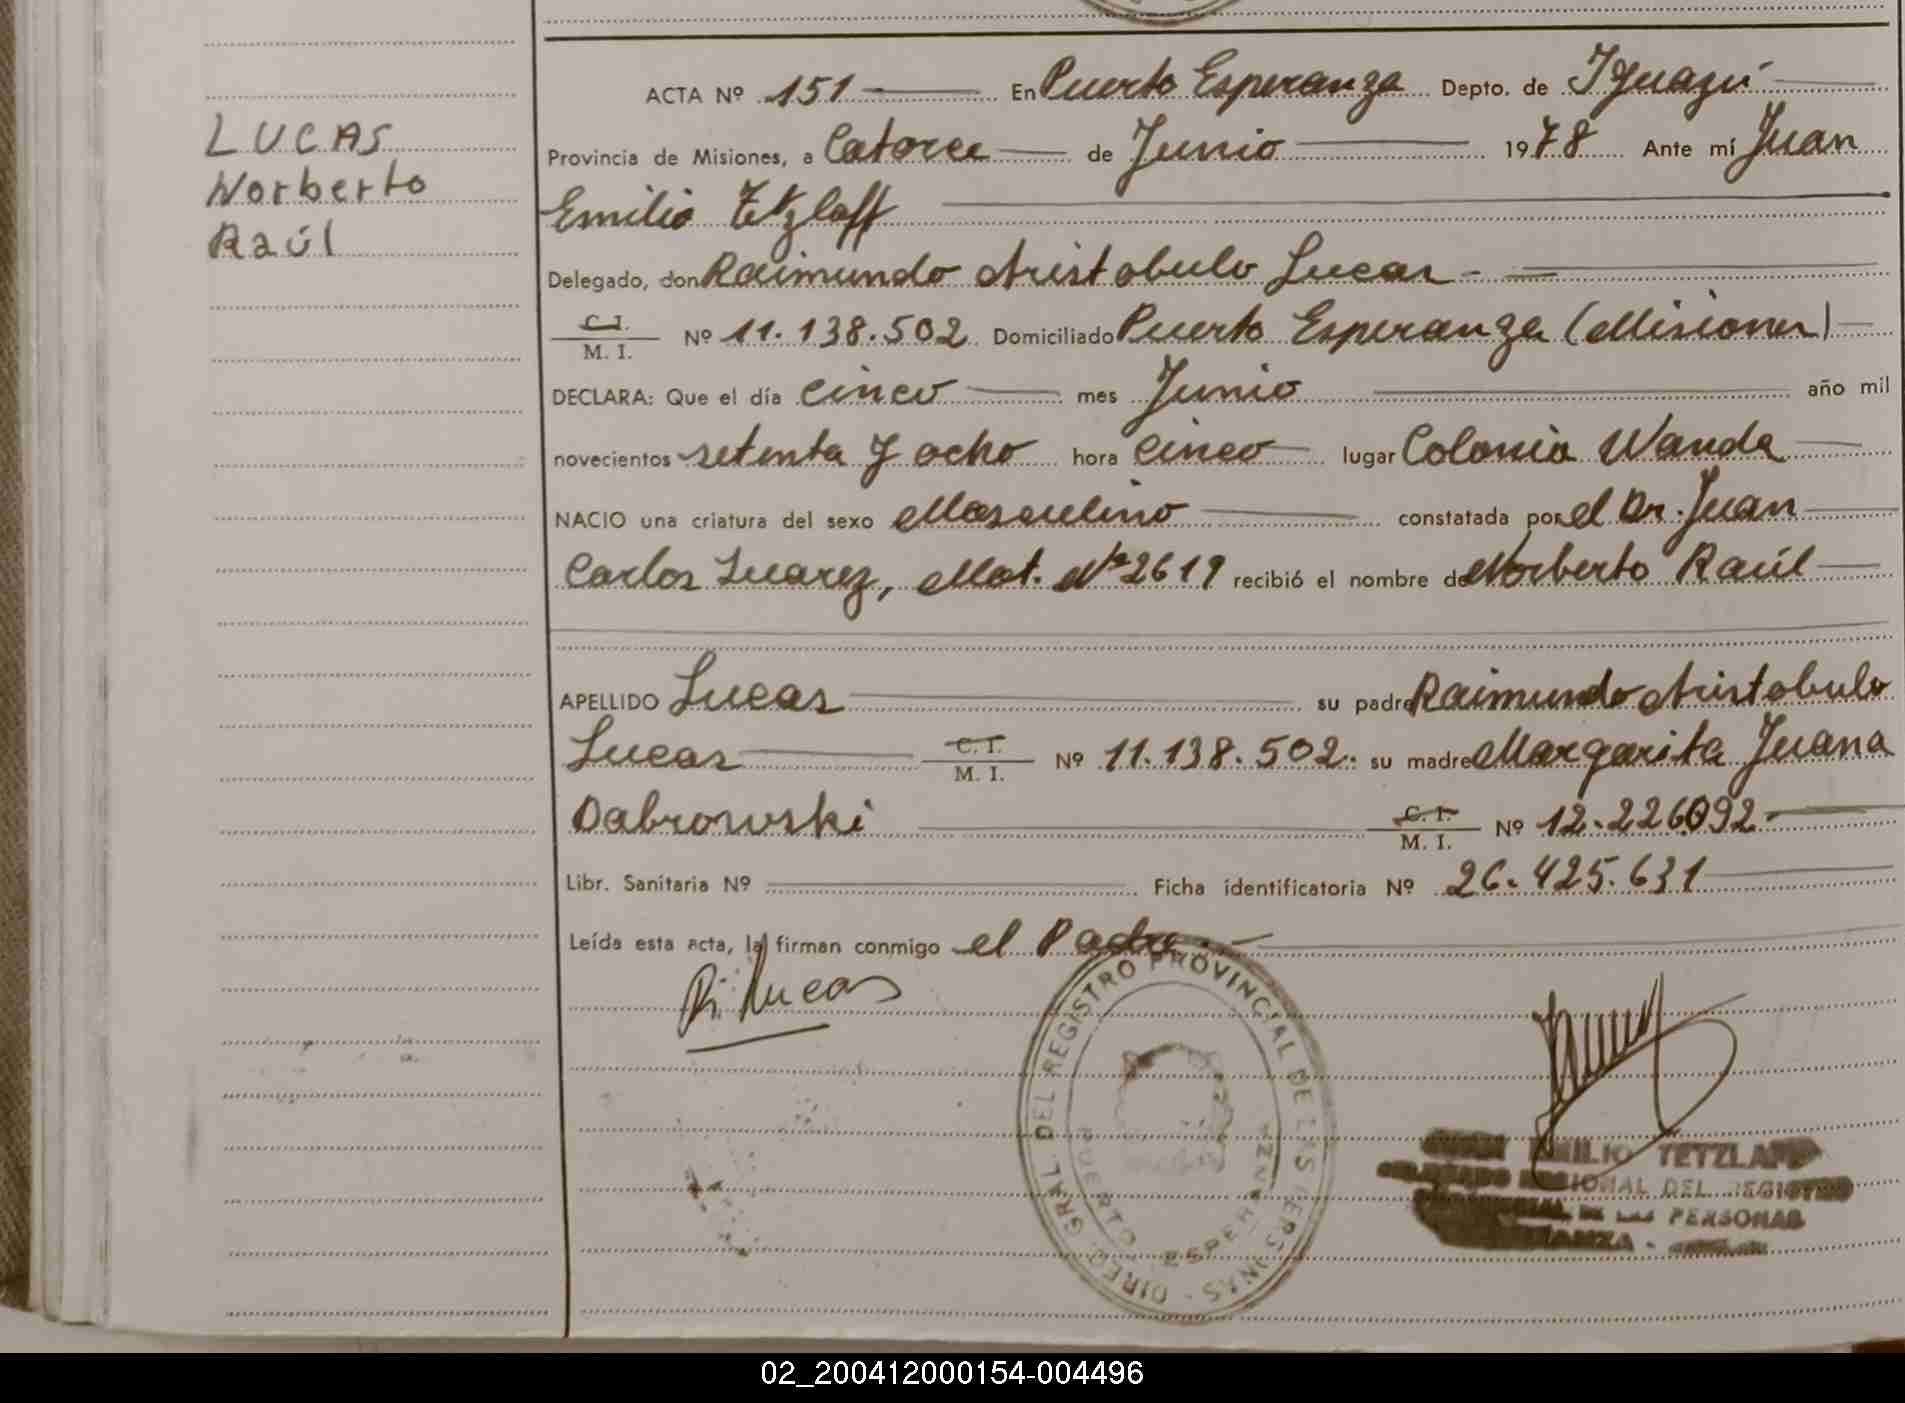 LUCAS
Norberto
Raúl
ACTA Nº 151 En Puerto Esperanza Depto. de Iguazú
Provincia de Misiones, a Catorce de Junio 1978 Ante mí Juan
Emilio Tetzlaff
Delegado, don Raimundo Aristobulo Lucas
C. I.
M. I. Nº 11.138.502 Domiciliado Puerto Esperanza (Misiones)
DECLARA: Que el día cinco mes Junio año mil
novecientos setenta y ocho hora cinco lugar Colonia Wanda
NACIO una criatura del sexo Masculino constatada por el Dr. Juan
Carlos Suarez, Mat. Nº 2619 recibió el nombre de Norberto Raúl
APELLIDO Lucas su padre Raimundo Aristobulo
Lucas C. I. M. I. Nº 11.138.502. su madre Margarita Juana
Dabrowski C. I. M. I. Nº 12.226092
Libr. Sanitaria Nº Ficha identificatoria Nº 26.425.631
Leída esta acta, la firman conmigo el Padre.
R. Lucas
DIREC. GRAL. DEL REGISTRO PROVINCIAL DE LAS PERSONAS
PUERTO ESPERANZA
EMILIO TETZLAFF
DELEGADO REGIONAL DEL REGISTRO
DE LAS PERSONAS
02_200412000154-004496